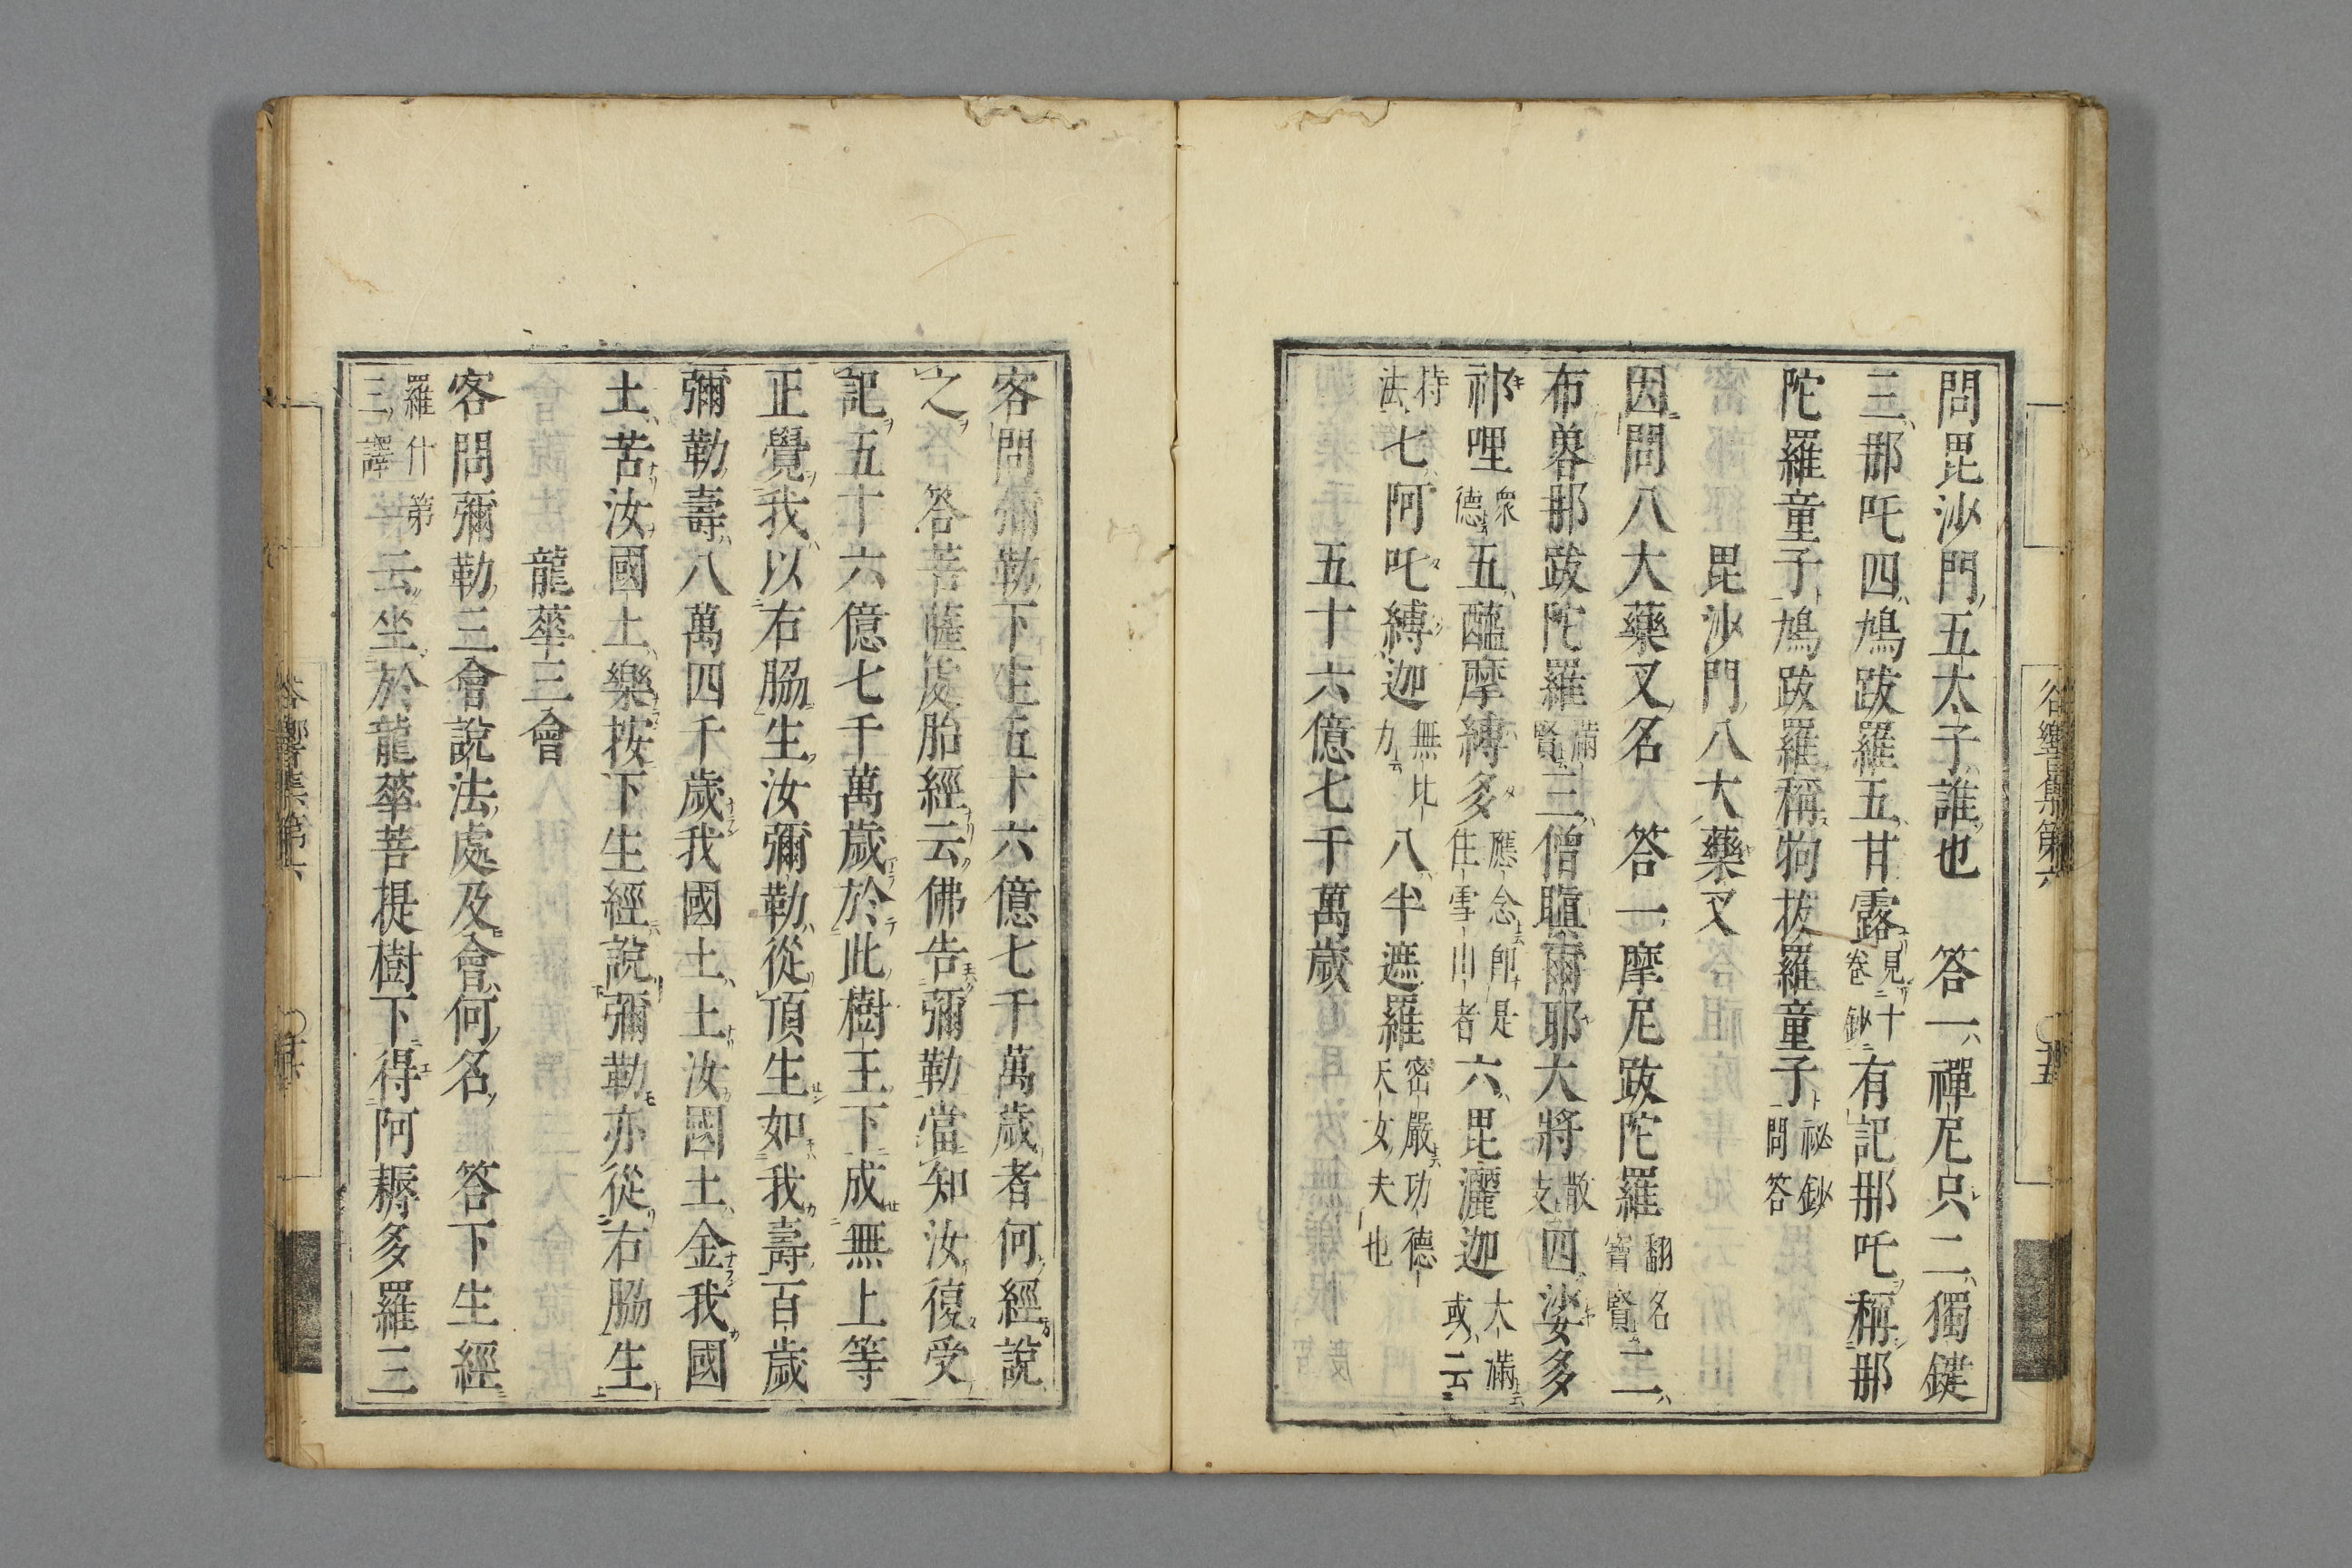 問毘沙門五太子誰也　答一禪尼只二獨鍵
三那吒四鳩跋羅五甘露見十卷鈔有記那吒稱那
陀羅童子鳩跋羅稱狗拔羅童子祕鈔問答
毘沙門八大藥叉
因問八大藥叉名　答一摩尼跋陀羅翻名寶賢二
布嚕那跋陀羅滿賢三僧聣爾耶大將散支四娑多
祁哩衆德五醯摩縛多應念即是住雪山者六毘灑迦大滿或云
持法七阿吒縛迦無比力八半遮羅密嚴功德天女夫也
五十六億七千萬歲
客問彌勒下生五十六億七千萬歲者何經說
之　答菩薩處胎經云佛告彌勒當知汝復受
記五十六億七千萬歲於此樹王下成無上等
正覺我以右脇生汝彌勒從頂生如我壽百歲
彌勒壽八萬四千歲我國土土汝國土金我國
土苦汝國土樂按下生經說彌勒亦從右脇生
龍華三會
客問彌勒三會說法處及會何名　答下生經
羅什第三譯云坐於龍華菩提樹下得阿耨多羅三
谷響集第六
〇五
谷響集第六